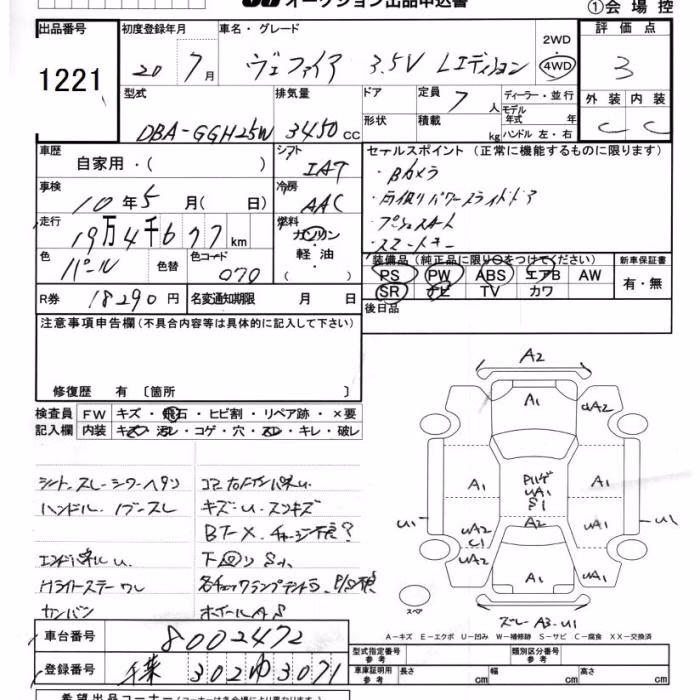 オークション出品申込書
①会場控
出品番号 初度登録年月 車名・グレード 2WD 評価点
1221 20 7月 ヴェルファイア 3.5V Lエディション 4WD 3
型式 排気量 ドア 定員 7人 ディーラー・並行 外装 内装
DBA-GGH25W 3450cc 形状 積載 kg モデル年式 年 ハンドル 左・右 C C
車歴 自家用・( ) シフト IAT セールスポイント (正常に機能するものに限ります)
車検 10年5月( 日) 冷房 AAC ・Bカメラ
・両側パワースライドドア
走行 19万4千677km 燃料 ガソリン 軽油・( ) ・プッシュスタート
・スマートキー
色 パール 色替 色コード 070 装備品 (純正品に限り○をつけてください) 新車保証書
PS PW ABS エアB AW 有・無
SR ナビ TV カワ
R券 18290円 名変通知期限 月 日 後日品
注意事項申告欄 (不具合内容等は具体的に記入して下さい)
修復歴 有 〔箇所 〕
検査員 FW キズ・飛石・ヒビ割・リペア跡・×要
記入欄 内装 キズ・汚レ・コゲ・穴・スレ・キレ・破レ
シート、スレ・シワ・ヘタリ
ハンドル、ノブ・スレ キズ・U・スリキズ
エンドパネルU 下回りサビ
Hライトステーワレ
カンバン ホイールAS
A2
A1
UA2 UA2
A1 A1
U1 UA1 S1 U1
UA2 C1 A2 UA1
UA2 A1 UA1
スペア
スレーA3・U1
A-キズ E-エクボ U-凹み W-補修跡 S-サビ C-腐食 XX-交換済
車台番号 8002472 型式指定番号 参考 類別区分番号 参考
登録番号 千葉 302 ゆ 3071 車庫証明用 参考 長さ cm 幅 cm 高さ cm
希望出品コーナー